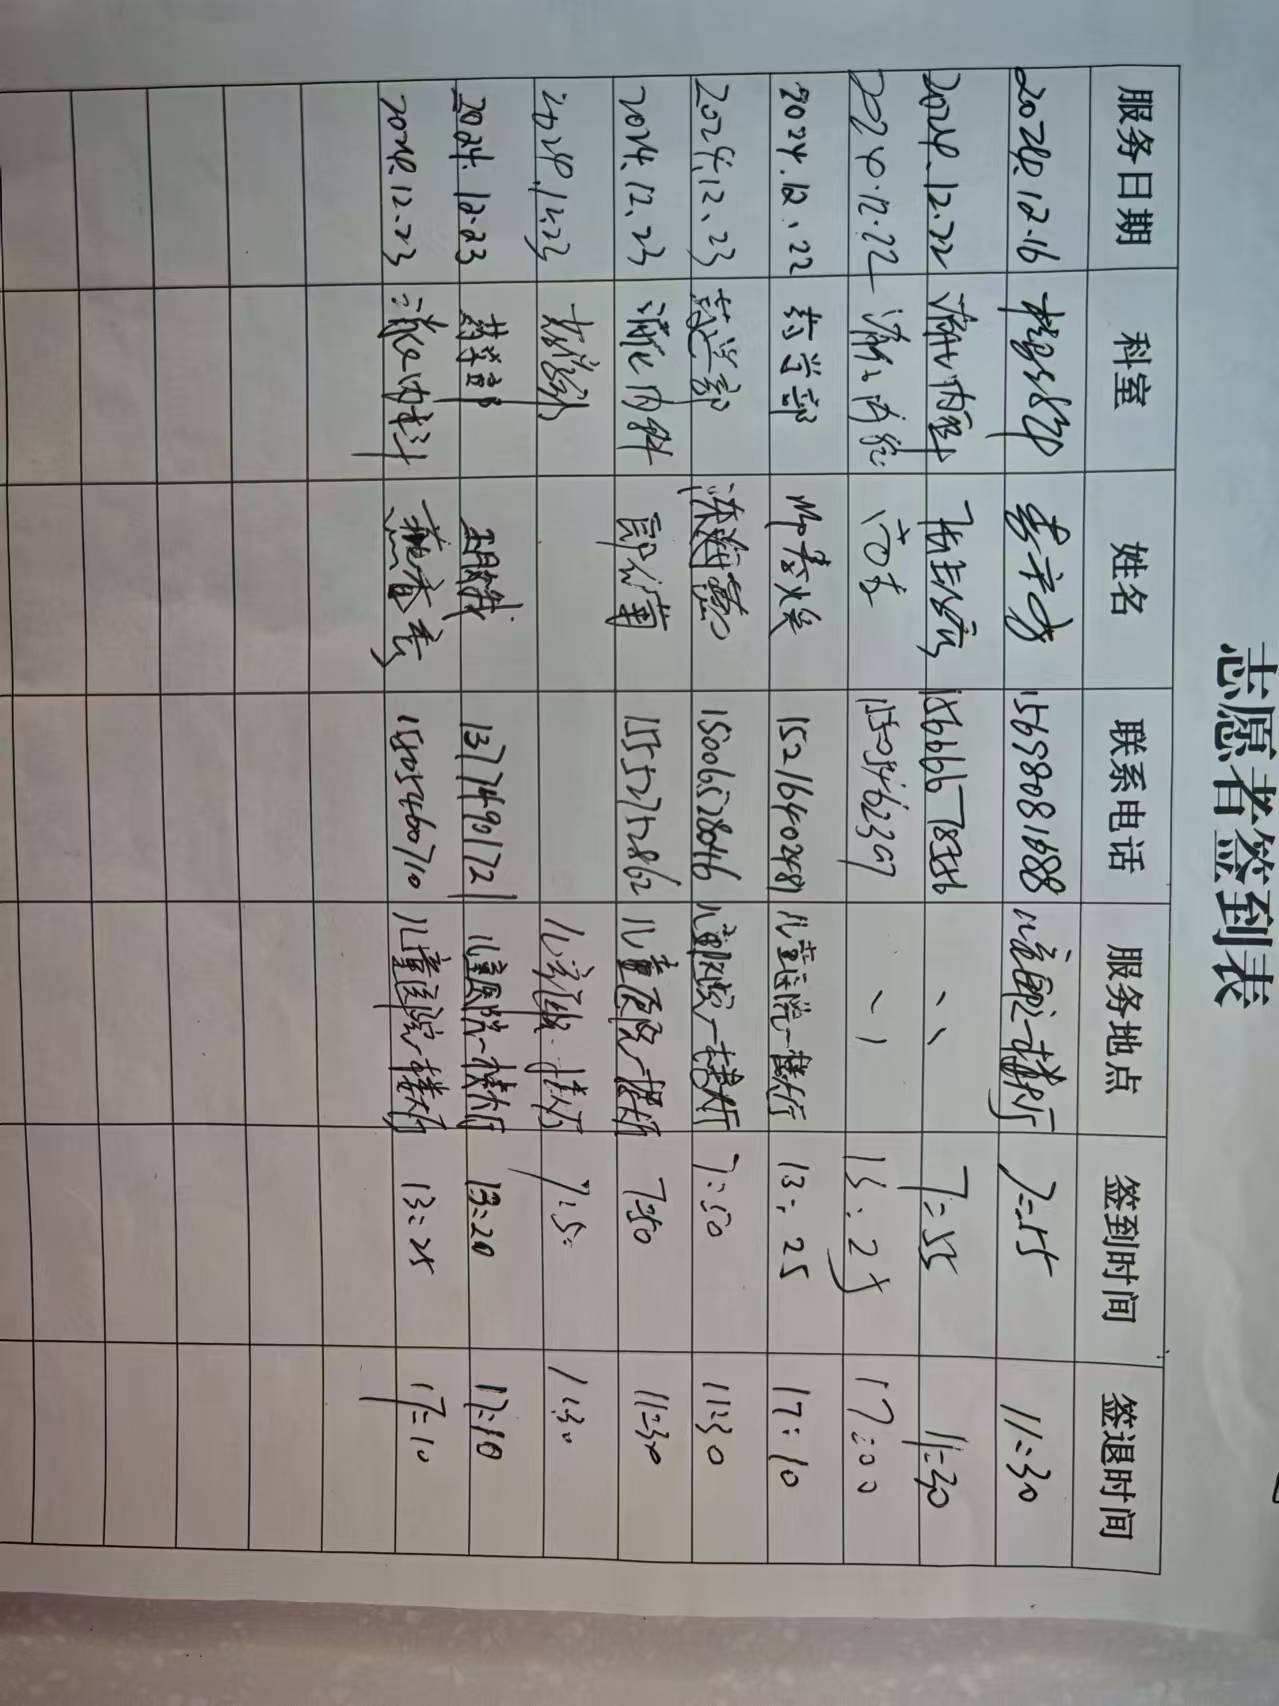 志愿者签到表
服务日期 科室 姓名 联系电话 服务地点 签到时间 签退时间
2024.12.16 15698081688 一楼大厅 7:55 11:30
2024.12.22 消化内科 18666678356 、、 7:55 11:30
2024.12.22 消化内科 15054662397 、、 13:25 17:00
2024.12.22 药学部 15216640248 儿童医院一楼大厅 13:25 17:10
2024.12.23 药学部 15006528046 儿童医院一楼大厅 7:50 11:30
2024.12.23 消化内科 郭公菊 15552752862 儿童医院一楼大厅 7:50 11:30
2024.12.23 药学部 儿童医院一楼大厅 7:50 11:30
2024.12.23 药学部 13774901721 儿童医院一楼大厅 13:20 17:10
2024.12.23 消化内科 燕香香 15805460710 儿童医院一楼大厅 13:25 17:10